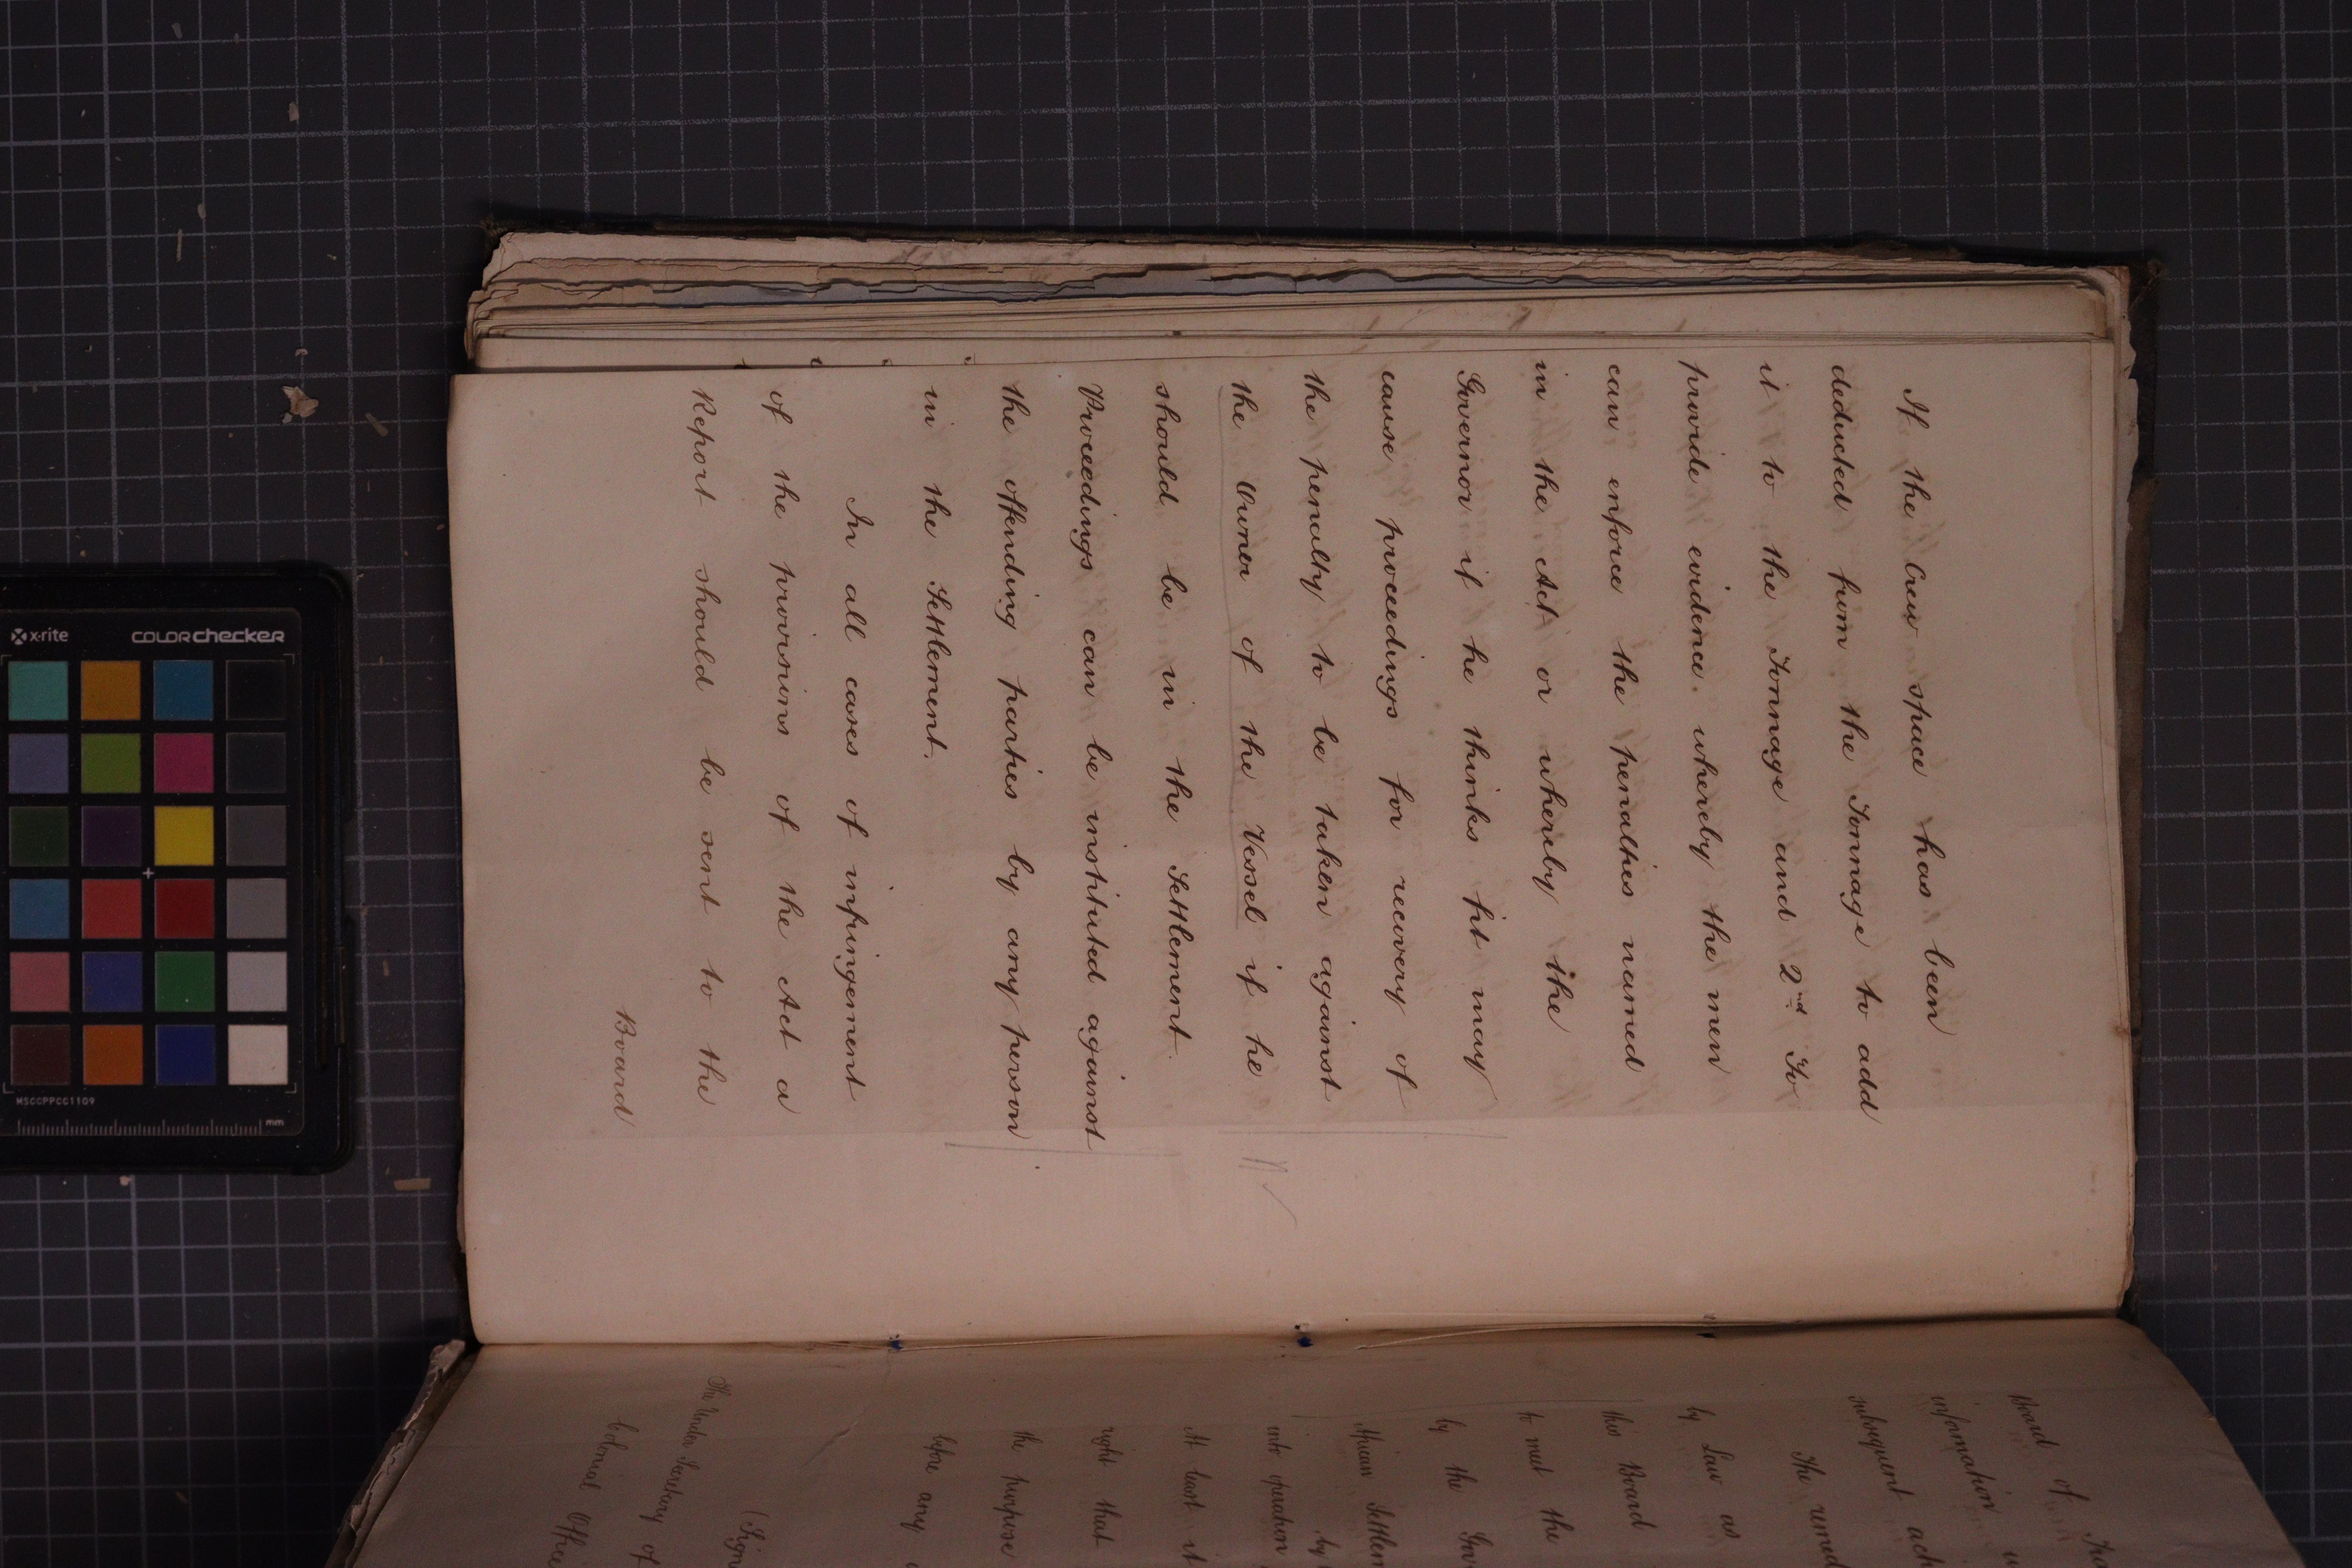 If the Crew space has been
deducted from the Tonnage to add
it to the Tonnage and 2nd To
provide evidence whereby the men
can enforce the penalties named
in the Act or whereby the
Governor if he thinks fit may
cause proceedings for recovery of
the penalty to be taken against
the Owner of the Vessel if he
should be in the Settlement.
Proceedings can be instituted against
the offending parties by any person
in the Settlement.
In all cases of infringement
of the provisions of the Act a
Report should be sent to the
Board
Board of
information
subsequent
The
by Law as
this Board
to meet the
by the
African
into operation
At least it
right that
the purpose
before any
The Under Secretary of
Colonial Office
x-rite
COLORchecker
MSCCPPCC1109
mm